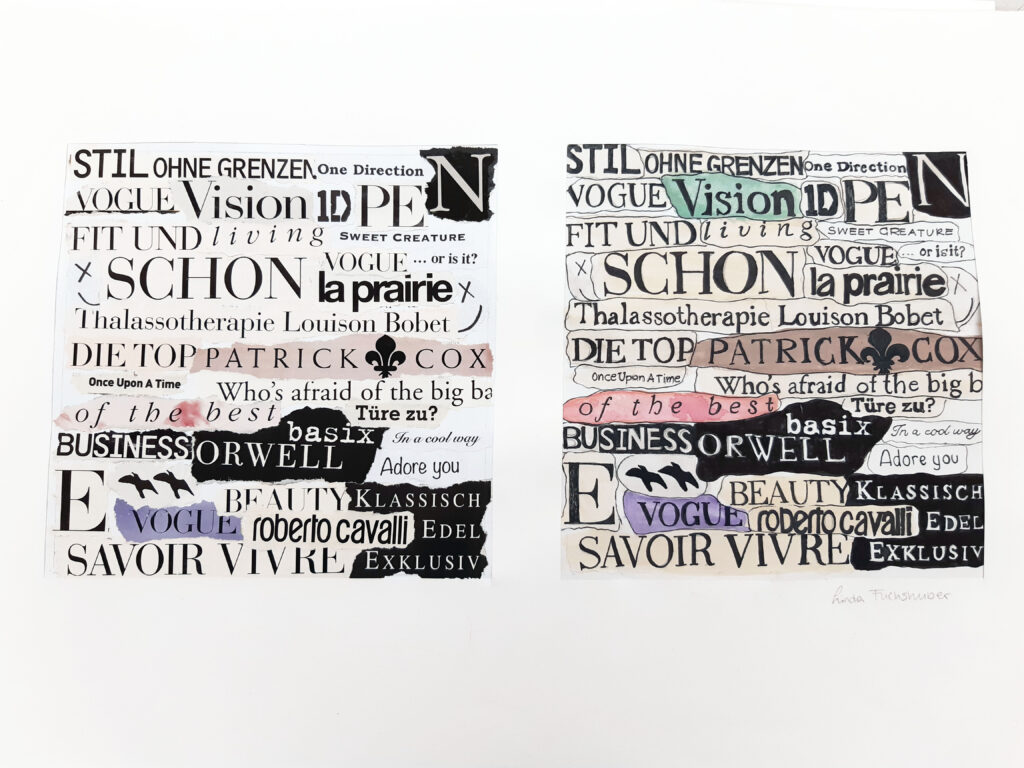 STIL OHNE GRENZEN One Direction N
VOGUE Vision 1D PE
FIT UND living SWEET CREATURE
SCHON VOGUE ... or is it?
la prairie
Thalassotherapie Louison Bobet
DIE TOP PATRICK COX
Once Upon A Time Who's afraid of the big ba
of the best Türe zu?
BUSINESS ORWELL basix In a cool way
Adore you
E BEAUTY KLASSISCH
VOGUE roberto cavalli EDEL
SAVOIR VIVRE EXKLUSIV
STIL OHNE GRENZEN One Direction N
VOGUE Vision 1D PE
FIT UND living SWEET CREATURE
SCHON VOGUE ... or is it?
la prairie
Thalassotherapie Louison Bobet
DIE TOP PATRICK COX
Once Upon A Time Who's afraid of the big b
of the best Türe zu?
BUSINESS ORWELL basix In a cool way
Adore you
E BEAUTY KLASSISCH
VOGUE roberto cavalli EDEL
SAVOIR VIVRE EXKLUSIV
Linda Fuchshuber